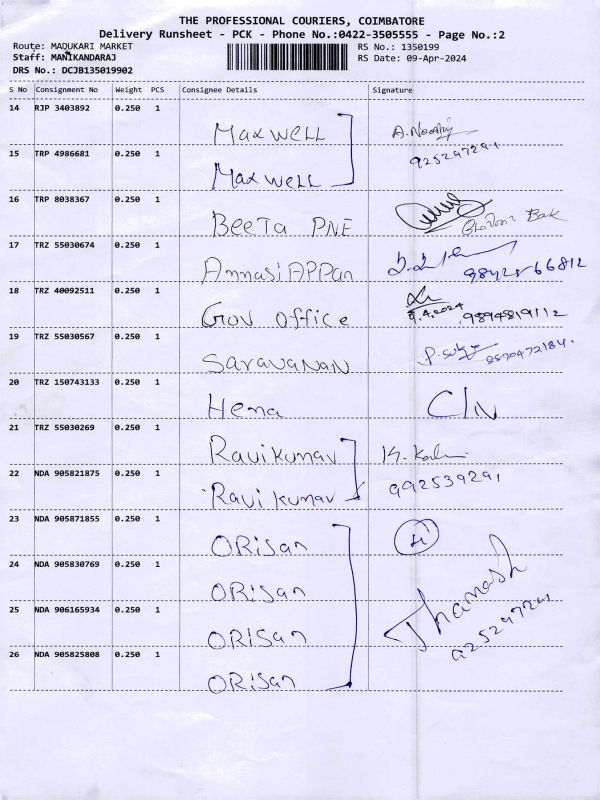 THE PROFESSIONAL COURIERS, COIMBATORE
Delivery Runsheet - PCK - Phone No.:0422-3505555 - Page No.:2
Route: MADUKARI MARKET
RS No.: 1350199
Staff: MANIKANDARAJ
RS Date: 09-Apr-2024
DRS No.: DCJB135019902
S No Consignment No Weight PCS Consignee Details Signature
14 RJP 3403892 0.250 1
Maxwell
15 TRP 4986681 0.250 1
Maxwell
925297291
16 TRP 8038367 0.250 1
Beeta PNE
17 TRZ 55030674 0.250 1
AmmasiAPPan
18 TRZ 40092511 0.250 1
Gov office
9.4.2024 .9894819112
19 TRZ 55030567 0.250 1
Saravanan
20 TRZ 150743133 0.250 1
Hema
C/N
21 TRZ 55030269 0.250 1
Ravikumar
22 NDA 905821875 0.250 1
Ravikumar
992539291
23 NDA 905871855 0.250 1
ORisan
24 NDA 905830769 0.250 1
ORisan
25 NDA 906165934 0.250 1
ORISan
925297291
26 NDA 905825808 0.250 1
ORisan